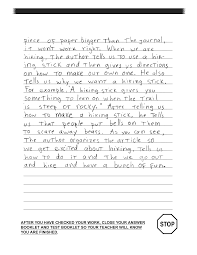 piece of paper bigger than The journal,
it won't work right. When we are
hiking. The author Tells us to use a hik
ing stick and Then gives us directions
on how to make our own one. He also
Tells us why we want a hiking stick.
For example. A hiking stick gives you
something to leen on when the Trail
is steep or rocky." After Telling us
how to make a hiking stick, he Tells
us That people put bells on Them
to scare away bears. As you can see,
The author organizes The article so
we get excited about hiking, Tells us
how to do it and The we go out
and hike and have a bunch of fun.
AFTER YOU HAVE CHECKED YOUR WORK, CLOSE YOUR ANSWER
BOOKLET AND TEST BOOKLET SO YOUR TEACHER WILL KNOW
YOU ARE FINISHED.
STOP